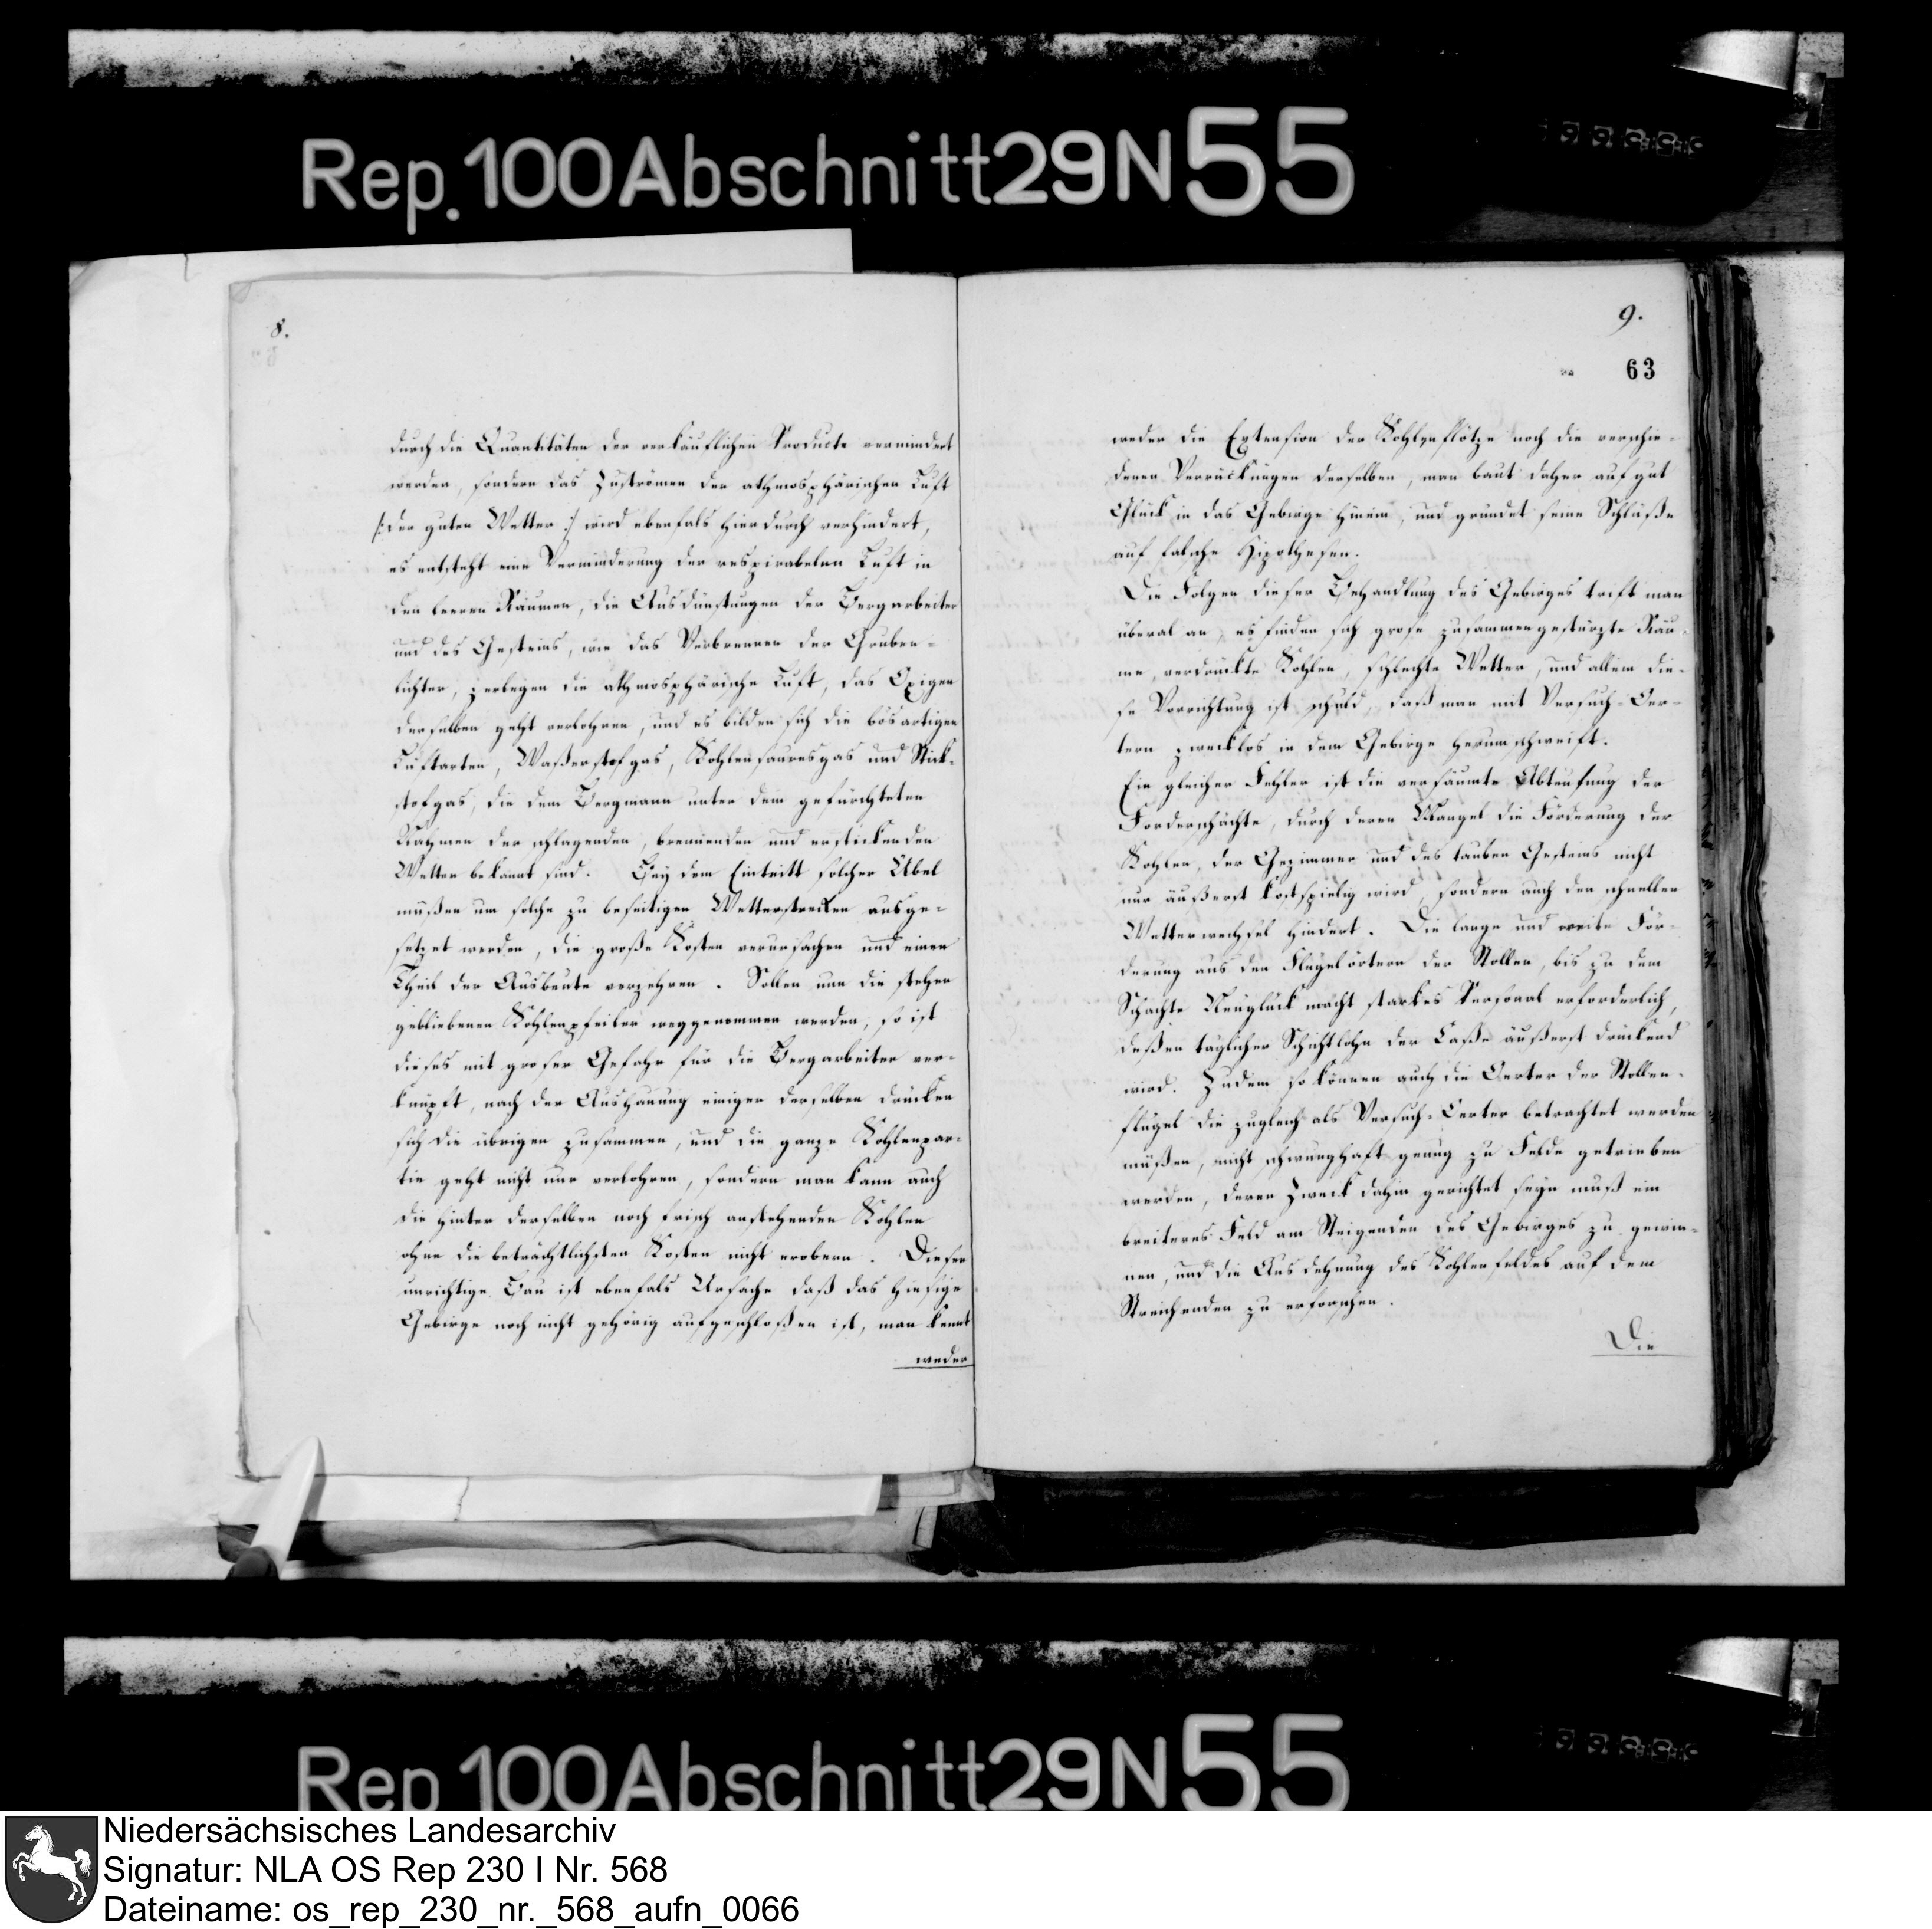 Rep. 100 Abschnitt 29 N 55
8.
durch die Quantitäten der verkäuflichen Producte vermindert
werden, sondern das Zuströmen der athmosphärischen Luft
/: der guten Wetter :/ wird ebenfals hierdurch verhindert,
es entsteht eine Verminderung der respirabelen Luft in
den leeren Räumen, die Ausdünstungen der Bergarbeiter
und des Gesteins, wie das Verbrennen der Gruben-
lichter, zerlegen die athmosphärische Luft, das Oxigen
derselben geht verlohren, und es bilden sich die bösartigen
Luftarten, Waßerstofgas, Kohlensauresgas und Stick-
stofgas, die dem Bergmann unter dem gefürchteten
Nahmen der schlagenden, brennenden und erstickenden
Wetter bekannt sind. Bey dem Eintritt solcher Übel
müßen um solche zu beseitigen Wetterstrecken ausge-
setzet werden, die große Kosten verursachen und einen
Theil der Ausbeute verzehren. Sollen nun die stehen
gebliebenen Kohlenpfeiler weggenommen werden, so ist
dieses mit groser Gefahr für die Bergarbeiter ver-
knüpft, nach der Aushauung einiger derselben drücken
sich die übrigen zusammen, und die ganze Kohlenpar-
tie geht nicht nur verlohren, sondern man kann auch
die hinter derselben noch frisch anstehenden Kohlen
ohne die beträchtlichsten Kosten nicht erobern. Dieser
unrichtige Bau ist ebenfals Ursache daß das hiesige
Gebirge noch nicht gehörig aufgeschloßen ist, man kennt
weder
9.
63
weder die Extension der Kohlenflötze noch die verschie-
denen Verrückungen derselben, man baut daher auf gut
Glück in das Gebirge hinein, und gründet seine Schlüße
auf falsche Hipothesen.
Die Folgen dieser Behandlung des Gebirges trift man
überal an, es finden sich grose zusammengestürzte Räu-
me, verdrückte Kohlen, schlechte Wetter, und allein die-
se Vorrichtung ist schuld, daß man mit Versuch-Oer-
tern zwecklos in dem Gebirge herumschweift.
Ein gleicher Fehler ist die versäumte Abteufung der
Förderschächte, durch deren Mangel die Förderung der
Kohlen, der Gezimmer und des tauben Gesteins nicht
nur äußerst kostspielig wird, sondern auch den schnellen
Wetterwechsel hindert. Die lange und weite För-
derung aus den Flügelörtern der Stollen, bis zu dem
Schachte Neuglück macht starkes Personal erforderlich,
deßen täglicher Schichtlohn der Caße äußerst drückend
wird. Zudem so können auch die Oerter der Stollen-
flügel die zugleich als Versuch-Oerter betrachtet werden
müßen, nicht schwunghaft genug zu Felde getrieben
werden, deren Zweck dahin gerichtet seyn muß ein
breiteres Feld am Steigenden des Gebirges zu gewin-
nen, und die Ausdehnung des Kohlenfeldes auf dem
Streichenden zu erforschen.
Die
Rep 100 Abschnitt 29 N 55
Niedersächsisches Landesarchiv
Signatur: NLA OS Rep 230 I Nr. 568
Dateiname: os_rep_230_nr._568_aufn_0066